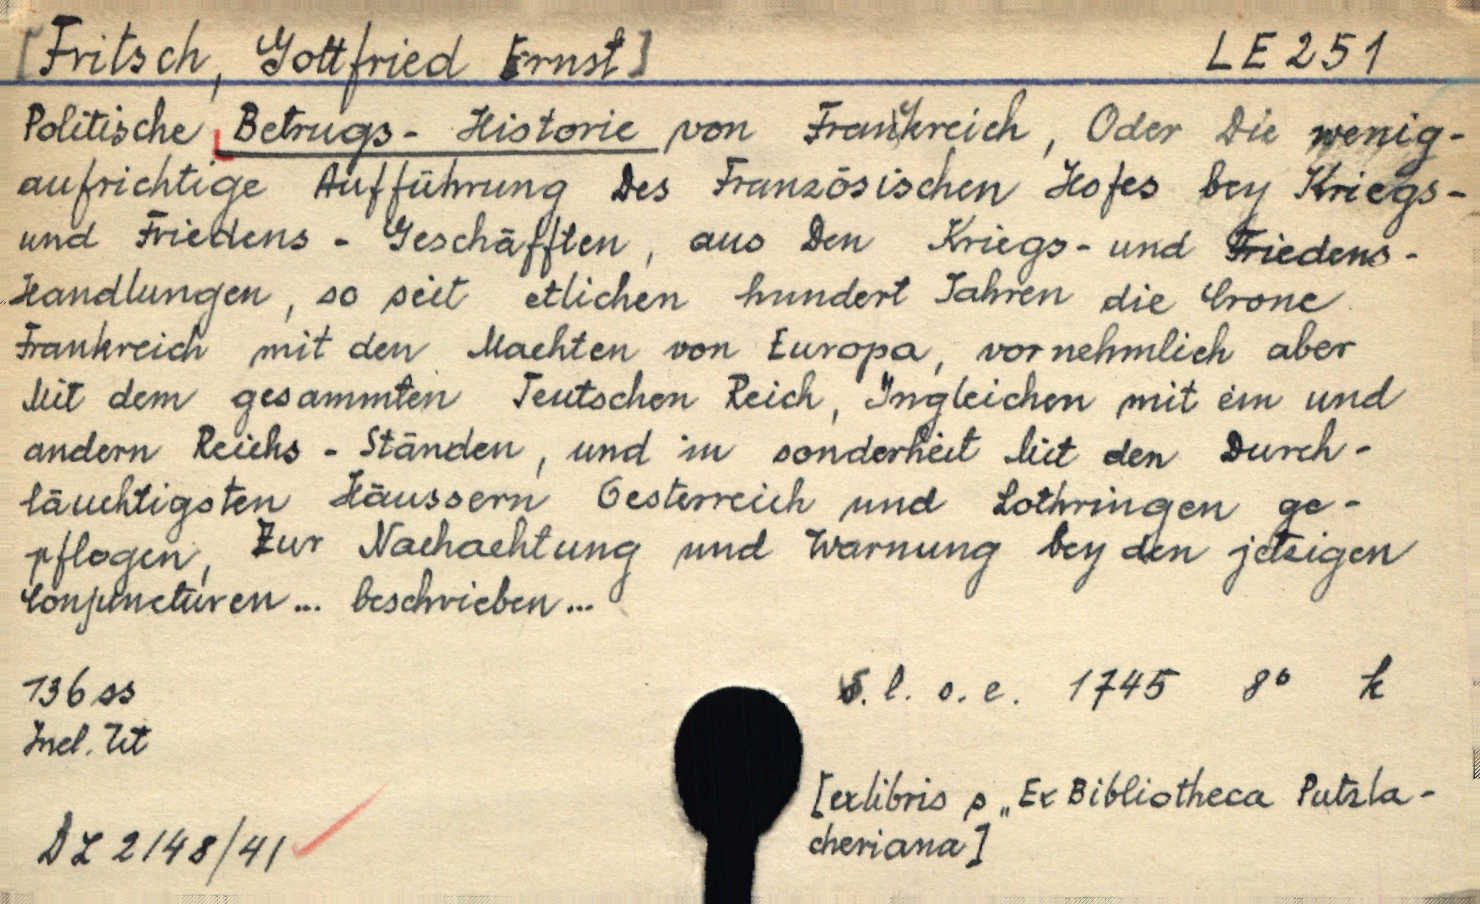 [Fritsch, Gottfried Ernst] LE 251
Politische Betrugs- Historie von Frankreich, Oder Die wenig-
aufrichtige Aufführung Des Französischen Hofes bey Kriegs-
und Friedens - Geschäfften, aus Den Kriegs- und Friedens-
Handlungen, so seit etlichen hundert Jahren die Crone
Frankreich mit den Machten von Europa, vornehmlich aber
Mit dem gesammten Teutschen Reich, Ingleichen mit ein und
andern Reichs - Ständen, und in sonderheit Mit den Durch-
läuchtigsten Häussern Oesterreich und Lothringen ge-
pflogen, Zur Nachachtung und Warnung bey den jetzigen
Conjuncturen... beschrieben...
136 ss S. l. o. e. 1745 8° k
Incl. Tit
[exlibris s „Ex Bibliotheca Putzla-
cheriana]
DZ 2148/41